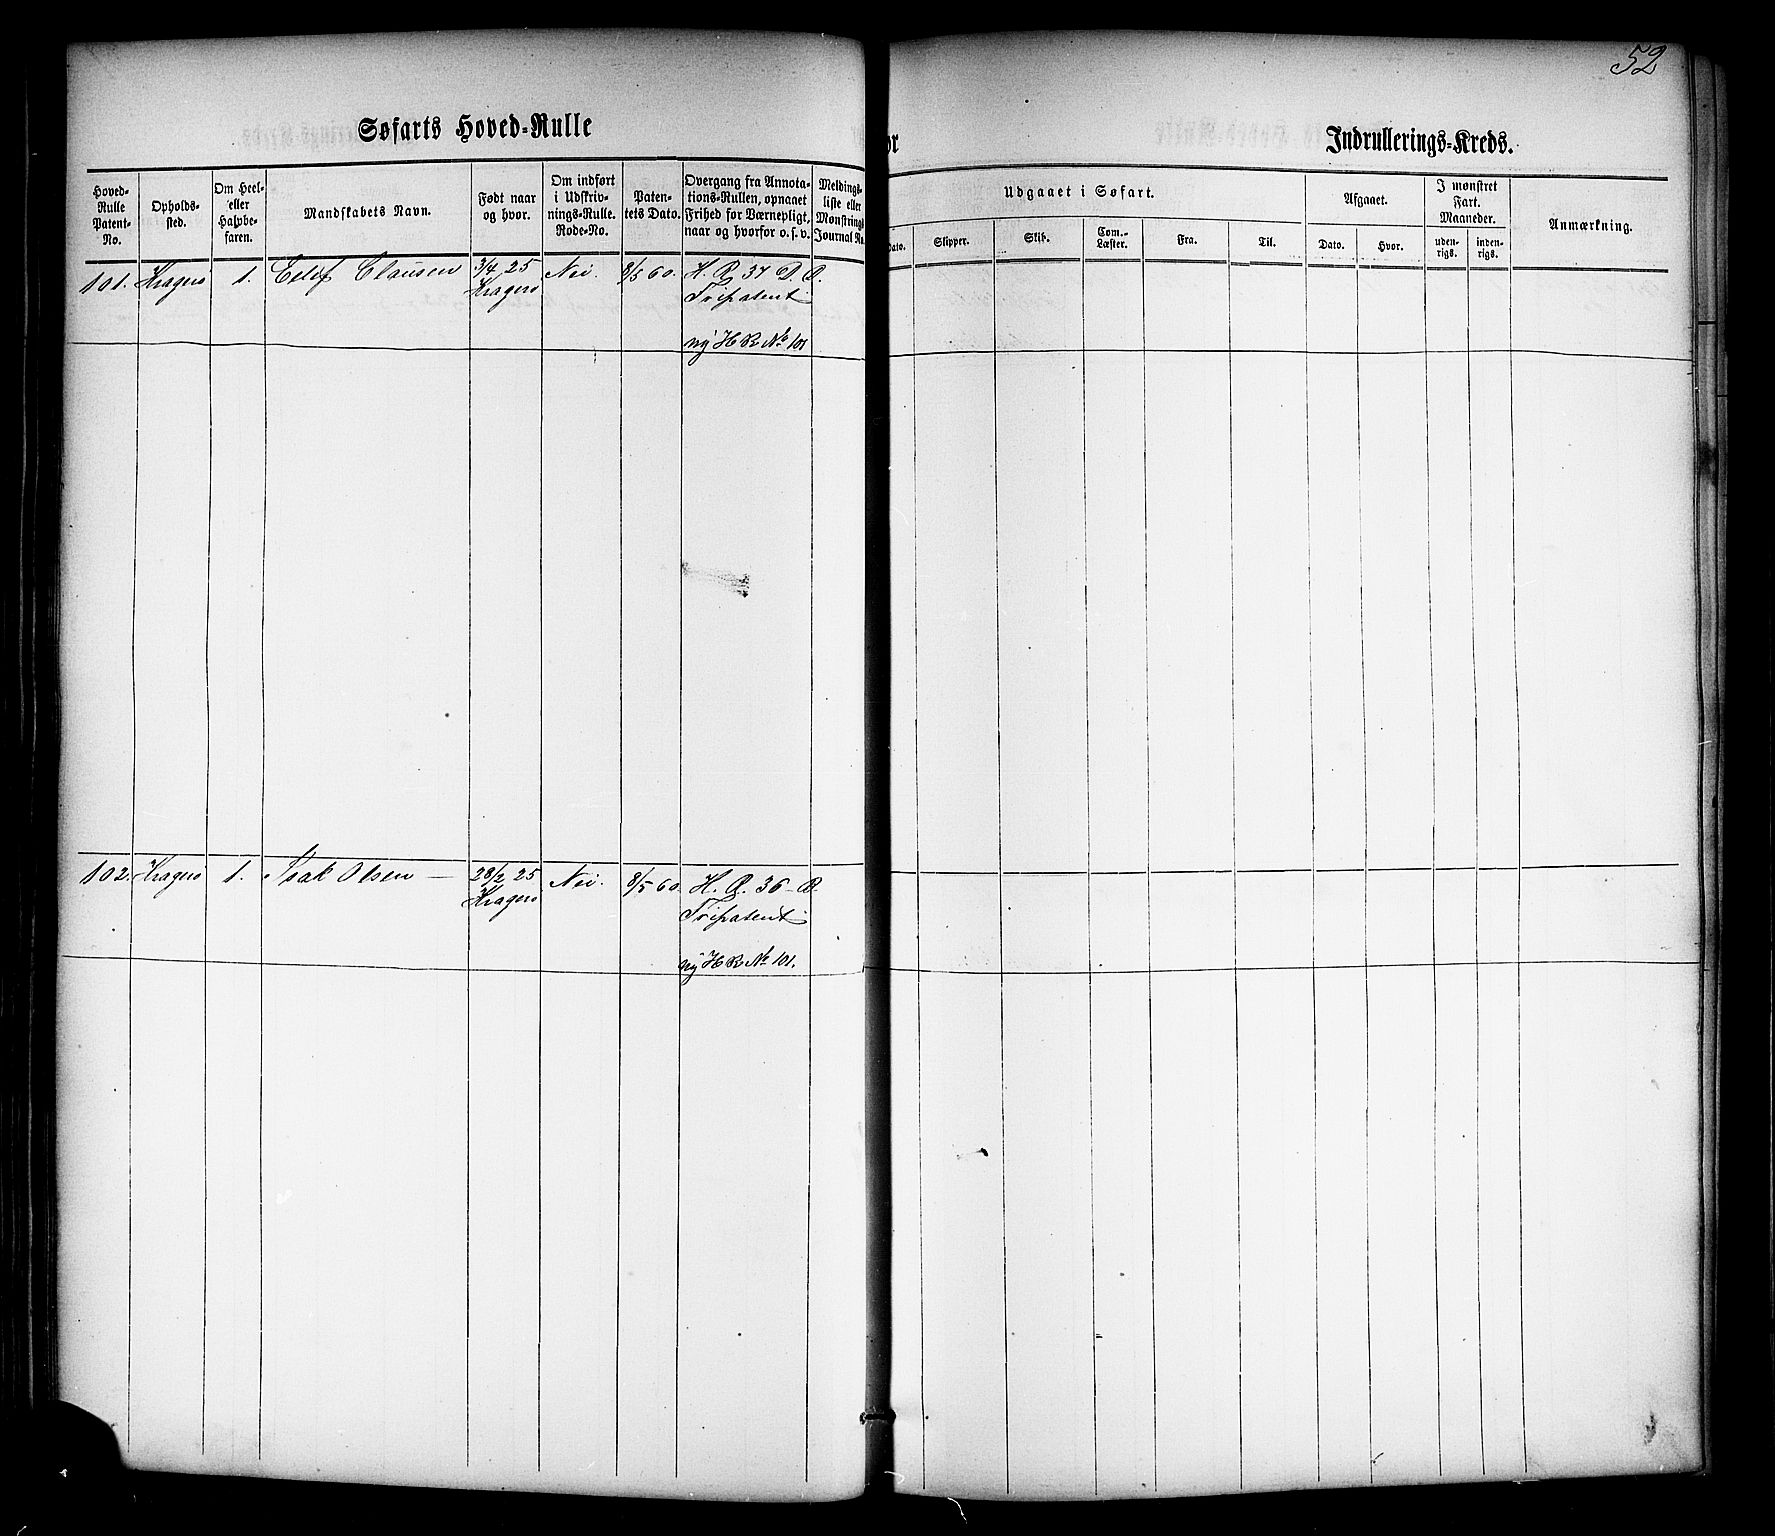 52
Søfarts Hoved-Rulle
or
Indrullerings-Kreds.
Hoved-
Rulle
Patent-
No.
Opholds-
sted.
Om Heel-
eller
Halvbe-
faren.
Mandskabets Navn.
Født naar
og hvor.
Om indført
i Udskriv-
nings-Rulle.
Rode-No.
Paten-
tets Dato.
Overgang fra Annota-
tions-Rullen, opnaaet
Frihed for Værnepligt,
naar og hvorfor o. s. v.
Meldings-
liste eller
Mønstrings-
Journal No.
Udgaaet i Søfart.
Dato.
Slipper.
Skib.
Com.-
Læster.
Fra.
Til.
Afgaaet.
Dato.
Hvor.
I mønstret
Fart.
Maaneder.
uden-
rigs.
inden-
rigs.
Anmærkning.
101. Kragerø 1. Eilif Clausen 3/4 25 Nei. 8/5 60. H. R. 37
Kragerø Fripatent
ny H R No 101
102. Kragerø 1. Isak Olsen — 28/2 25 Nei. 8/5 60. H. R. 36
Kragerø Fripatent
ny H R No 101.